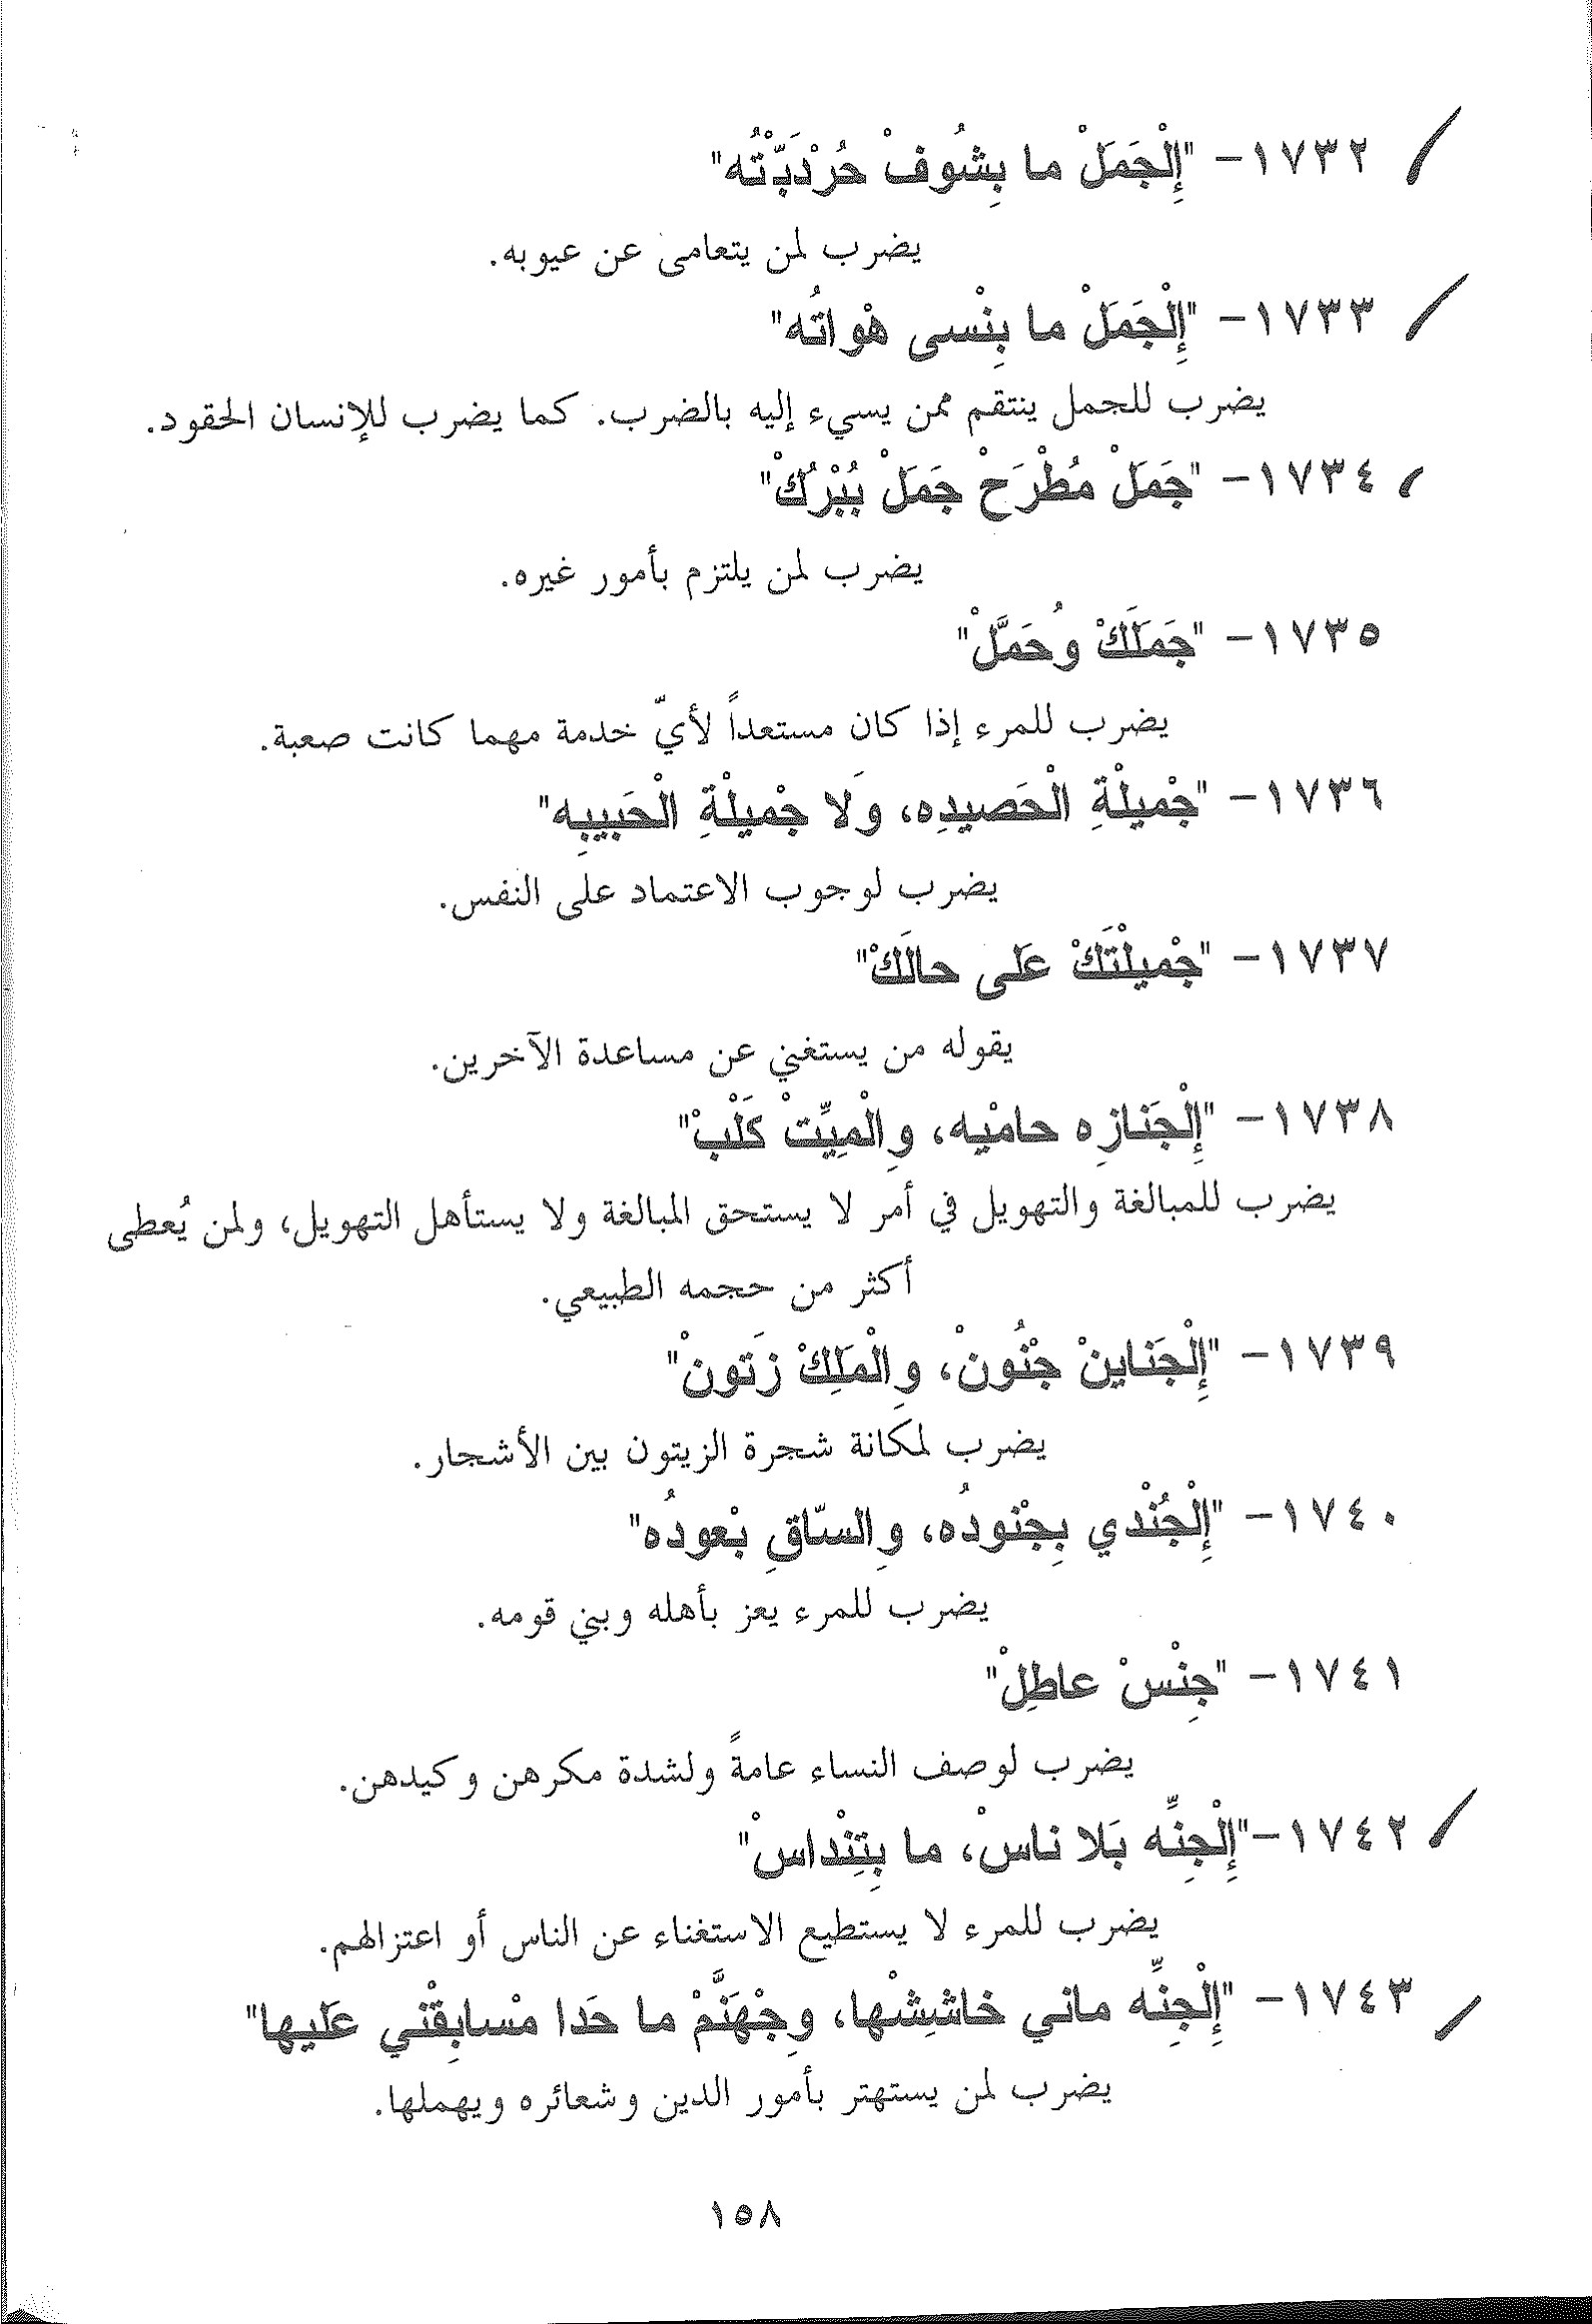 ١٧٣٢- "إِلْجَمَلْ ما بِشُوفْ حُرْدَبّْتُه"
يضرب لمن يتعامى عن عيوبه.
١٧٣٣- "إِلْجَمَلْ ما بِنْسى هْواتُه"
يضرب للجمل ينتقم ممن يسيء إليه بالضرب. كما يضرب للإنسان الحقود.
١٧٣٤- "جَمَلْ مُطْرَحْ جَمَلْ بُبْرُكْ"
يضرب لمن يلتزم بأمور غيره.
١٧٣٥- "جَمَلَكْ وُحَمَّلْ"
يضرب للمرء إذا كان مستعداً لأيّ خدمة مهما كانت صعبة.
١٧٣٦- "جْميلْةِ الْحَصيدِه، وَلا جْميلْةِ الْحَبيبِه"
يضرب لوجوب الاعتماد على النفس.
١٧٣٧- "جْميلْتَكْ عَلى حالَكْ"
يقوله من يستغني عن مساعدة الآخرين.
١٧٣٨- "إِلْجَنازِه حامْيه، وِالْمِيِّتْ كَلْبْ"
يضرب للمبالغة والتهويل في أمر لا يستحق المبالغة ولا يستأهل التهويل، ولمن يُعطى
أكثر من حجمه الطبيعي.
١٧٣٩- "إِلْجَناينْ جْنُونْ، وِالْمَلِكْ زَتونْ"
يضرب لمكانة شجرة الزيتون بين الأشجار.
١٧٤٠- "إِلْجُنْدي بِجْنودُه، وِالسّاقِ بْعودُه"
يضرب للمرء يعز بأهله وبني قومه.
١٧٤١- "جِنْسْ عاطِلْ"
يضرب لوصف النساء عامةً ولشدة مكرهن وكيدهن.
١٧٤٢-"إِلْجِنِّه بَلا ناسْ، ما بِتِنْداسْ"
يضرب للمرء لا يستطيع الاستغناء عن الناس أو اعتزالهم.
١٧٤٣- "إِلْجِنِّه ماني خاشِشْها، وِجْهَنَّمْ ما حَدا مْسابِقْني عَليها"
يضرب لمن يستهتر بأمور الدين وشعائره ويهملها.
١٥٨